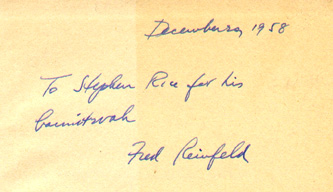 December 29, 1958
To Stephen Rice for his
barmitsvah
Fred Reinfeld